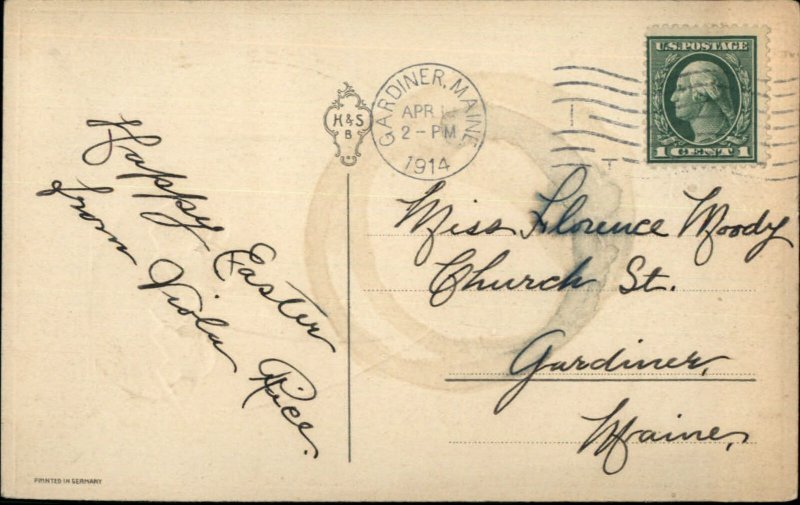 Happy Easter
from Viola Rice.
H & S
B
GARDINER, MAINE
APR
2 - PM
1914
U.S. POSTAGE
1 CENT 1
Miss Florence Moody
Church St.
Gardiner,
Maine,
PRINTED IN GERMANY